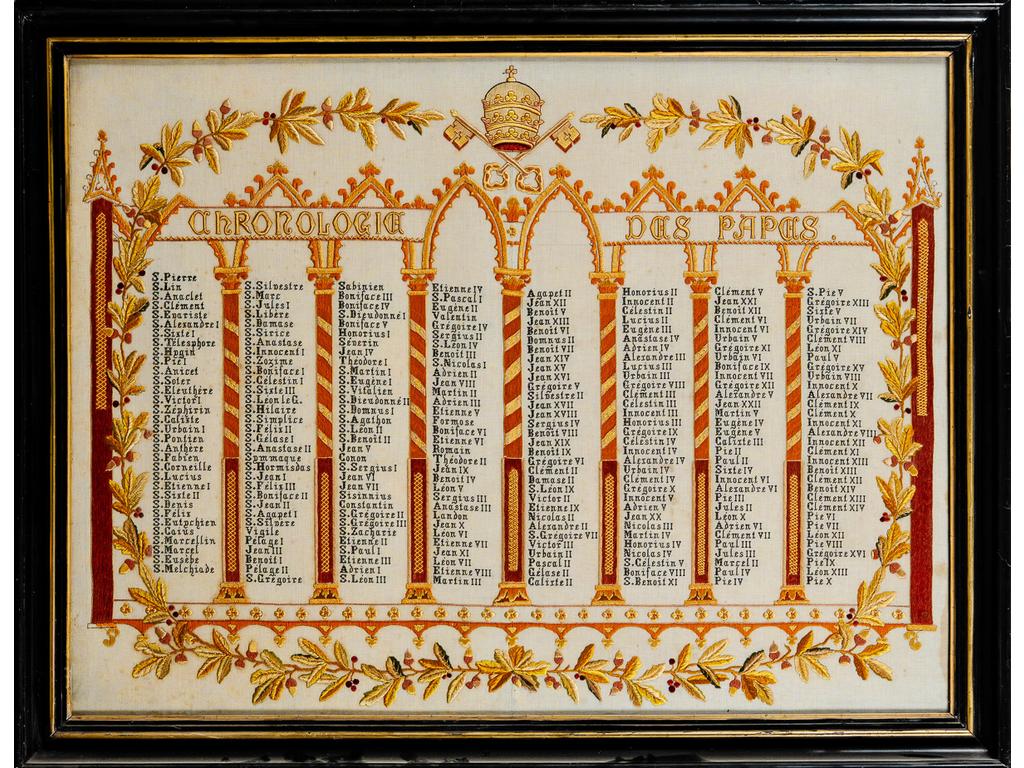 CHRONOLOGIE DES PAPES.
S.Pierre
S.Lin
S.Anaclet
S.Clément
S.Evariste
S.Alexandre I
S.Sixte I
S.Télesphore
S.Hygin
S.Pie I
S.Anicet
S.Soter
S.Eleuthère
S.Victor I
S.Zéphirin
S.Calixte
S.Urbain I
S.Pontien
S.Anthère
S.Fabien
S.Corneille
S.Lucius
S.Etienne I
S.Sixte II
S.Denis
S.Félix
S.Eutychien
S.Caïus
S.Marcellin
S.Marcel
S.Eusèbe
S.Melchiade
S.Silvestre
S.Marc
S.Jules I
S.Libère
S.Damase
S.Sirice
S.Anastase
S.Innocent I
S.Zozime
S.Boniface I
S.Célestin I
S.Sixte III
S.Léon le G.
S.Hilaire
S.Simplice
S.Félix II
S.Gélase I
S.Anastase II
Symmaque
S.Hormisdas
S.Jean I
S.Félix III
S.Boniface II
S.Jean II
S.Agapet I
S.Silvère
Vigile
Pélage I
Jean III
Benoît I
Pélage II
S.Grégoire
Sabinien
Boniface III
Boniface IV
S.Dieudonné I
Boniface V
Honorius I
Séverin
Jean IV
Théodore I
S.Martin I
S.Eugène I
S.Vitalien
S.Dieudonné II
S.Domnus I
S.Agathon
S.Léon II
S.Benoît II
Jean V
Conon
S.Sergius I
Jean VI
Jean VII
Sisinnius
Constantin
S.Grégoire II
S.Grégoire III
S.Zacharie
Etienne II
S.Paul I
Etienne III
Adrien I
S.Léon III
Etienne IV
S.Pascal I
Eugène II
Valentin
Grégoire IV
Sergius II
S.Léon IV
Benoît III
S.Nicolas I
Adrien II
Jean VIII
Martin II
Adrien III
Etienne V
Formose
Boniface VI
Etienne VI
Romain
Théodore II
Jean IX
Benoît IV
Léon V
Sergius III
Anastase III
Landon
Jean X
Léon VI
Etienne VII
Jean XI
Léon VII
Etienne VIII
Martin III
Agapet II
Jean XII
Benoît V
Jean XIII
Benoît VI
Domnus II
Benoît VII
Jean XIV
Jean XV
Jean XVI
Grégoire V
Silvestre II
Jean XVII
Jean XVIII
Sergius IV
Benoît VIII
Jean XIX
Benoît IX
Grégoire VI
Clément II
Damase II
S.Léon IX
Victor II
Etienne IX
Nicolas II
Alexandre II
S.Grégoire VII
Victor III
Urbain II
Pascal II
Gélase II
Calixte II
Honorius II
Innocent II
Célestin II
Lucius II
Eugène III
Anastase IV
Adrien IV
Alexandre III
Lucius III
Urbain III
Grégoire VIII
Clément III
Célestin III
Innocent III
Honorius III
Grégoire IX
Célestin IV
Innocent IV
Alexandre IV
Urbain IV
Clément IV
Grégoire X
Innocent V
Adrien V
Jean XX
Nicolas III
Martin IV
Honorius IV
Nicolas IV
S.Célestin V
Boniface VIII
S.Benoît XI
Clément V
Jean XXI
Benoît XII
Clément VI
Innocent VI
Urbain V
Grégoire XI
Urbain VI
Boniface IX
Innocent VII
Grégoire XII
Alexandre V
Jean XXII
Martin V
Eugène IV
Eugène V
Calixte III
Pie II
Paul II
Sixte IV
Innocent VI
Alexandre VI
Pie III
Jules II
Léon X
Adrien VI
Clément VII
Paul III
Jules III
Marcel II
Paul IV
Pie IV
S.Pie V
Grégoire XIII
Sixte V
Urbain VII
Grégoire XIV
Clément VIII
Léon XI
Paul V
Grégoire XV
Urbain VIII
Innocent X
Alexandre VII
Clément IX
Clément X
Innocent XI
Alexandre VIII
Innocent XII
Clément XI
Innocent XIII
Benoît XIII
Clément XII
Benoît XIV
Clément XIII
Clément XIV
Pie VI
Pie VII
Léon XII
Pie VIII
Grégoire XVI
Pie IX
Léon XIII
Pie X